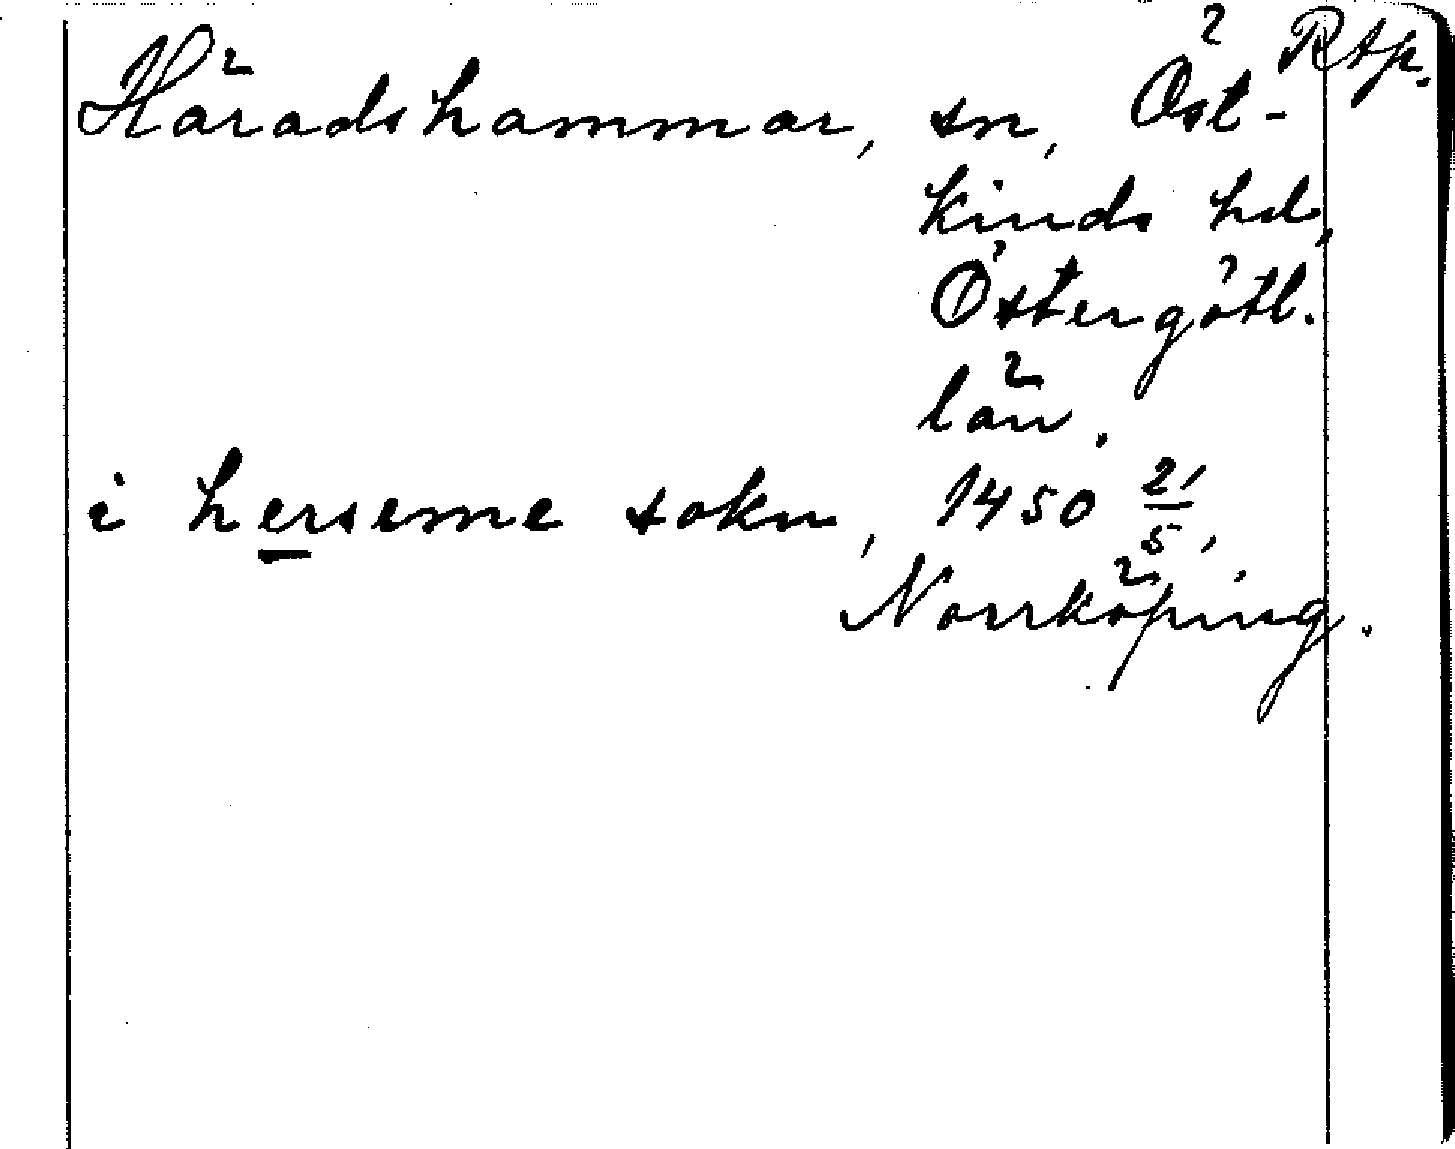 Rtp.
Häradshammar, sn, Öst-
kinds hd,
Östergötl.
län.
i herseme sokn, 1450 21/5,
Norrköping.